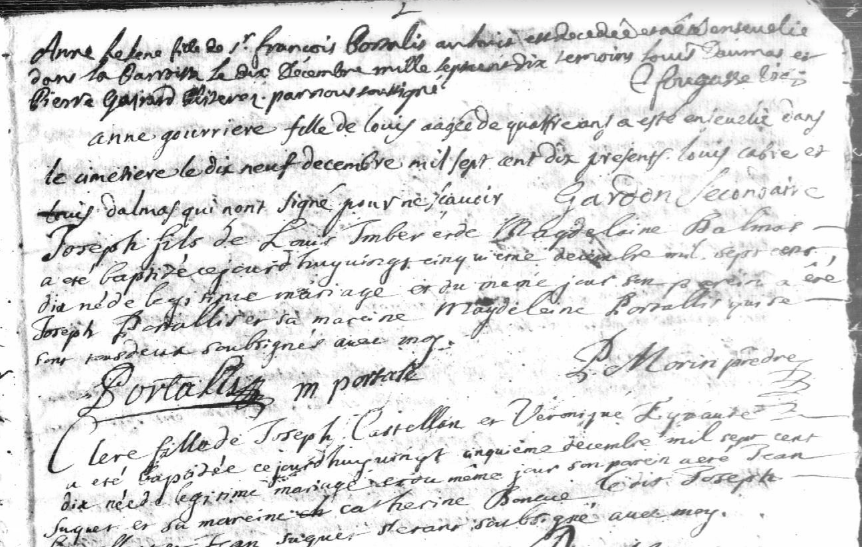 Anne helene fille de Sr. francois Portalis est decedée et a été ensevelie
dans la Parroisse le dix Décembre mille sept cent dix temoins Louis Daumas et
Pierre par nous soussigné fougasse
anne gourriere fille de louis aagée de quattre ans a esté ensevelie dans
le cimetiere le dix neuf decembre mil sept cent dix presents louis cabre et
louis dalmas qui nont signé pour ne scavoir Gardon Secondaire
Joseph fils de Louis Imber et de Magdeleine Dalmas
a été baptizé cejourdhuy vingt cinquieme decembre mil sept cens
dix né de legitime mariage et du meme jour son parein a été
Joseph Portallis et sa mareine Magdeleine Portallis qui se
sont tous deux soubsignés avec moy.
Portallis m portalis P Morin pretre
Clere fille de Joseph Castellan et Véronique Eyraude
a été baptizée cejourdhuy vingt cinquième décembre mil sept cent
dix née de legitime mariage et du même jour son parein a été Jean
Suquet et sa mareine catherine Joseph
Jean Suquet soubsigné avec moy.